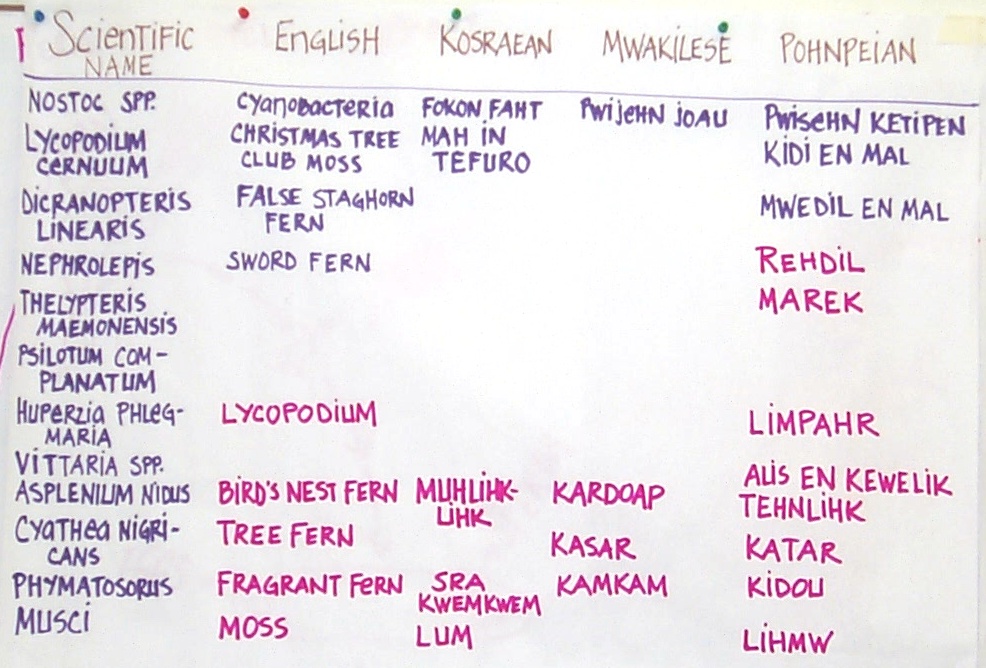 SCIENTIFIC NAME ENGLISH KOSRAEAN MWAKILESE POHNPEIAN
NOSTOC SPP. CYANOBACTERIA FOKON FAHT PWIJEHN JOAU PWISEHN KETIPEN
LYCOPODIUM CHRISTMAS TREE MAH IN KIDI EN MAL
CERNUUM CLUB MOSS TEFURO
DICRANOPTERIS FALSE STAGHORN MWEDIL EN MAL
LINEARIS FERN
NEPHROLEPIS SWORD FERN REHDIL
THELYPTERIS MAREK
MAEMONENSIS
PSILOTUM COM-
PLANATUM
HUPERZIA PHLEG- LYCOPODIUM LIMPAHR
MARIA
VITTARIA SPP. ALIS EN KEWELIK
ASPLENIUM NIDUS BIRD'S NEST FERN MUHLIHK- KARDOAP TEHNLIHK
LIHK
CYATHEA NIGRI- TREE FERN KASAR KATAR
CANS
PHYMATOSORUS FRAGRANT FERN SRA KAMKAM KIDOU
KWEMKWEM
MUSCI MOSS LUM LIHMW